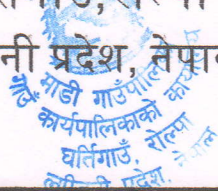 नी प्रदेश, नेपा
माडी गाउँपालि
गाउँ कार्यपालिकाको कार्या
घर्तिगाउँ, रोल्पा
लुम्बिनी प्रदेश, नेपाल